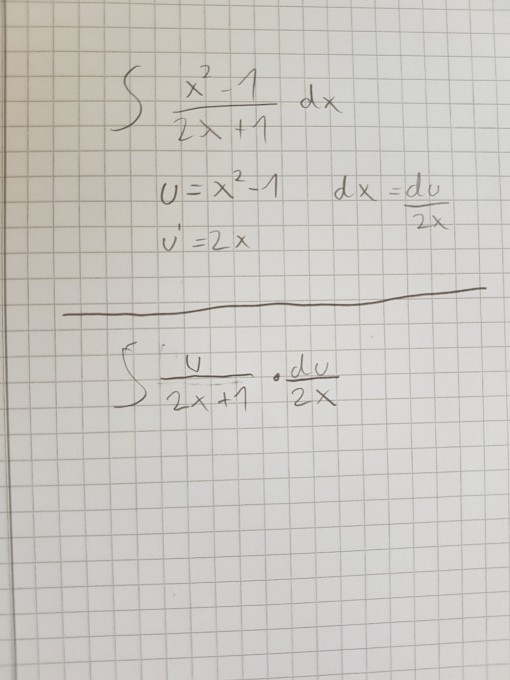 ∫ (x² - 1)/(2x + 1) dx
u = x² - 1 dx = du/2x
u' = 2x
∫ u/(2x + 1) · du/2x